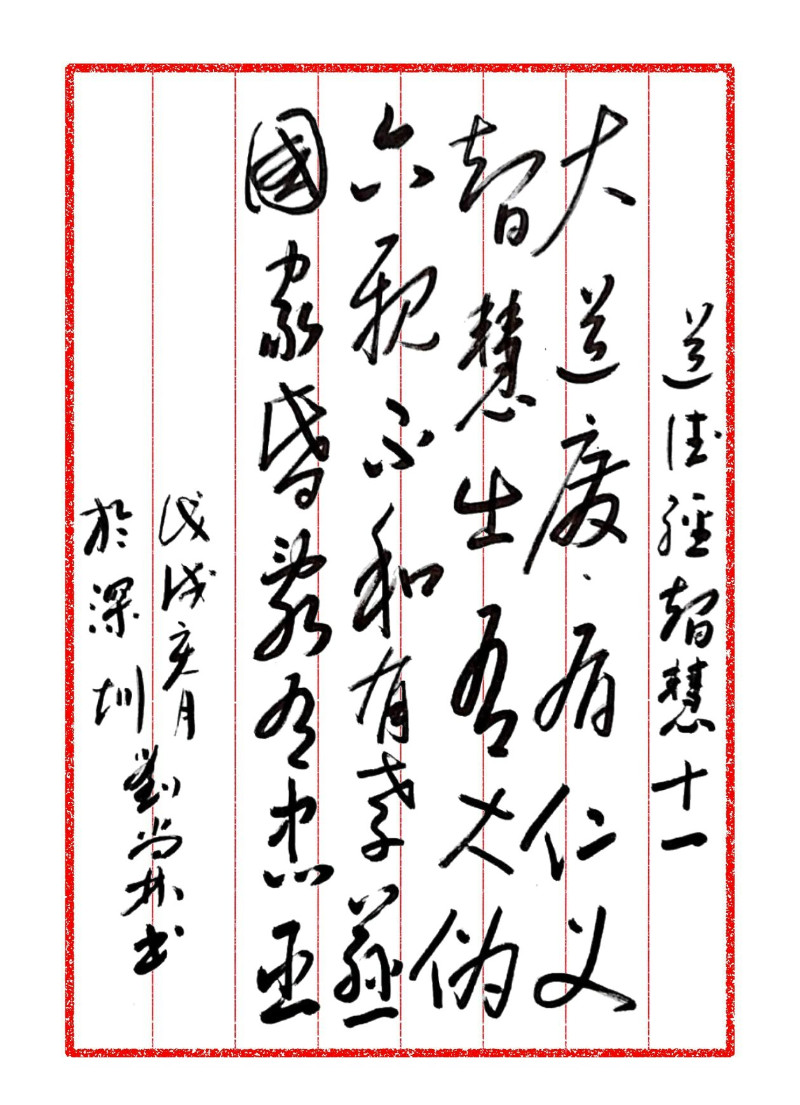 道德經智慧十一
大道废有仁义
智慧生有大伪
六親不和有孝慈
國家昏亂有忠臣
戊戌亥月
於深圳
劉崇林書